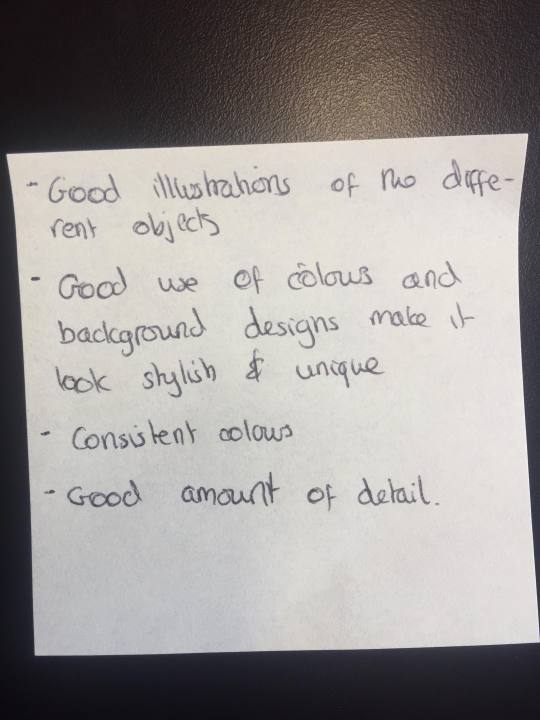 - Good illustrations of the diffe-
rent objects
- Good use of colours and
background designs make it
look stylish & unique
- Consistent colours
- Good amount of detail.